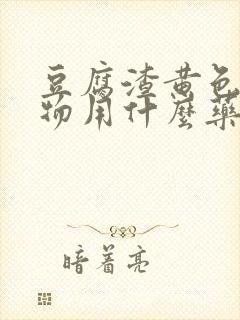 豆腐渣黄色
物用什麼藥
暗着亮